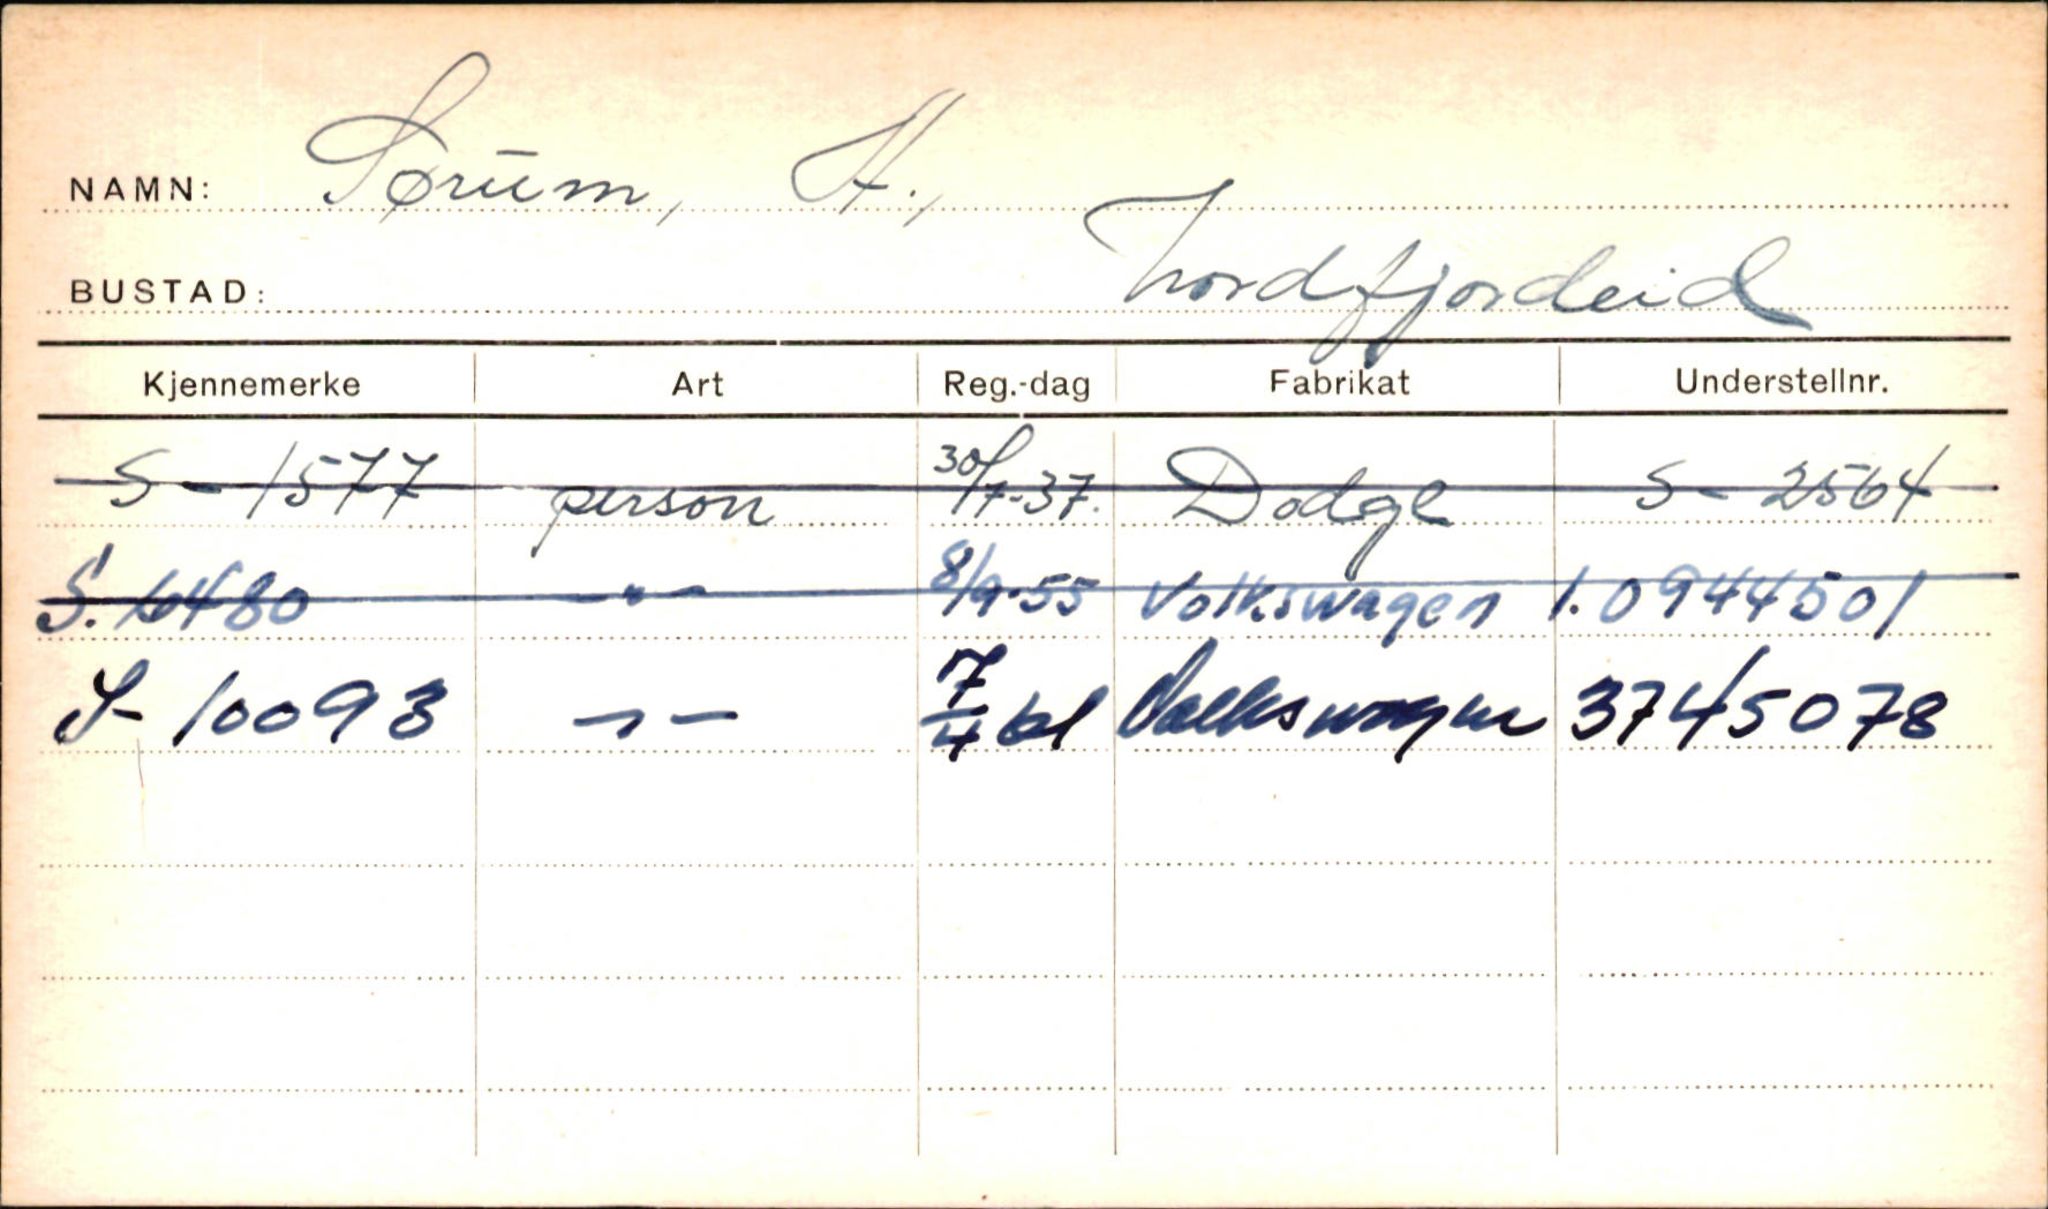 NAMN: Sørum, H.,
BUSTAD: Nordfjordeid
Kjennemerke Art Reg.-dag Fabrikat Understellnr.
S - 1577 person 30/7-37. Dodge S - 2564
S. 6480 -"- 8/9-55 Volkswagen 1.0944501
S- 10093 -"- 7/4 61 Volkswagen 3745078